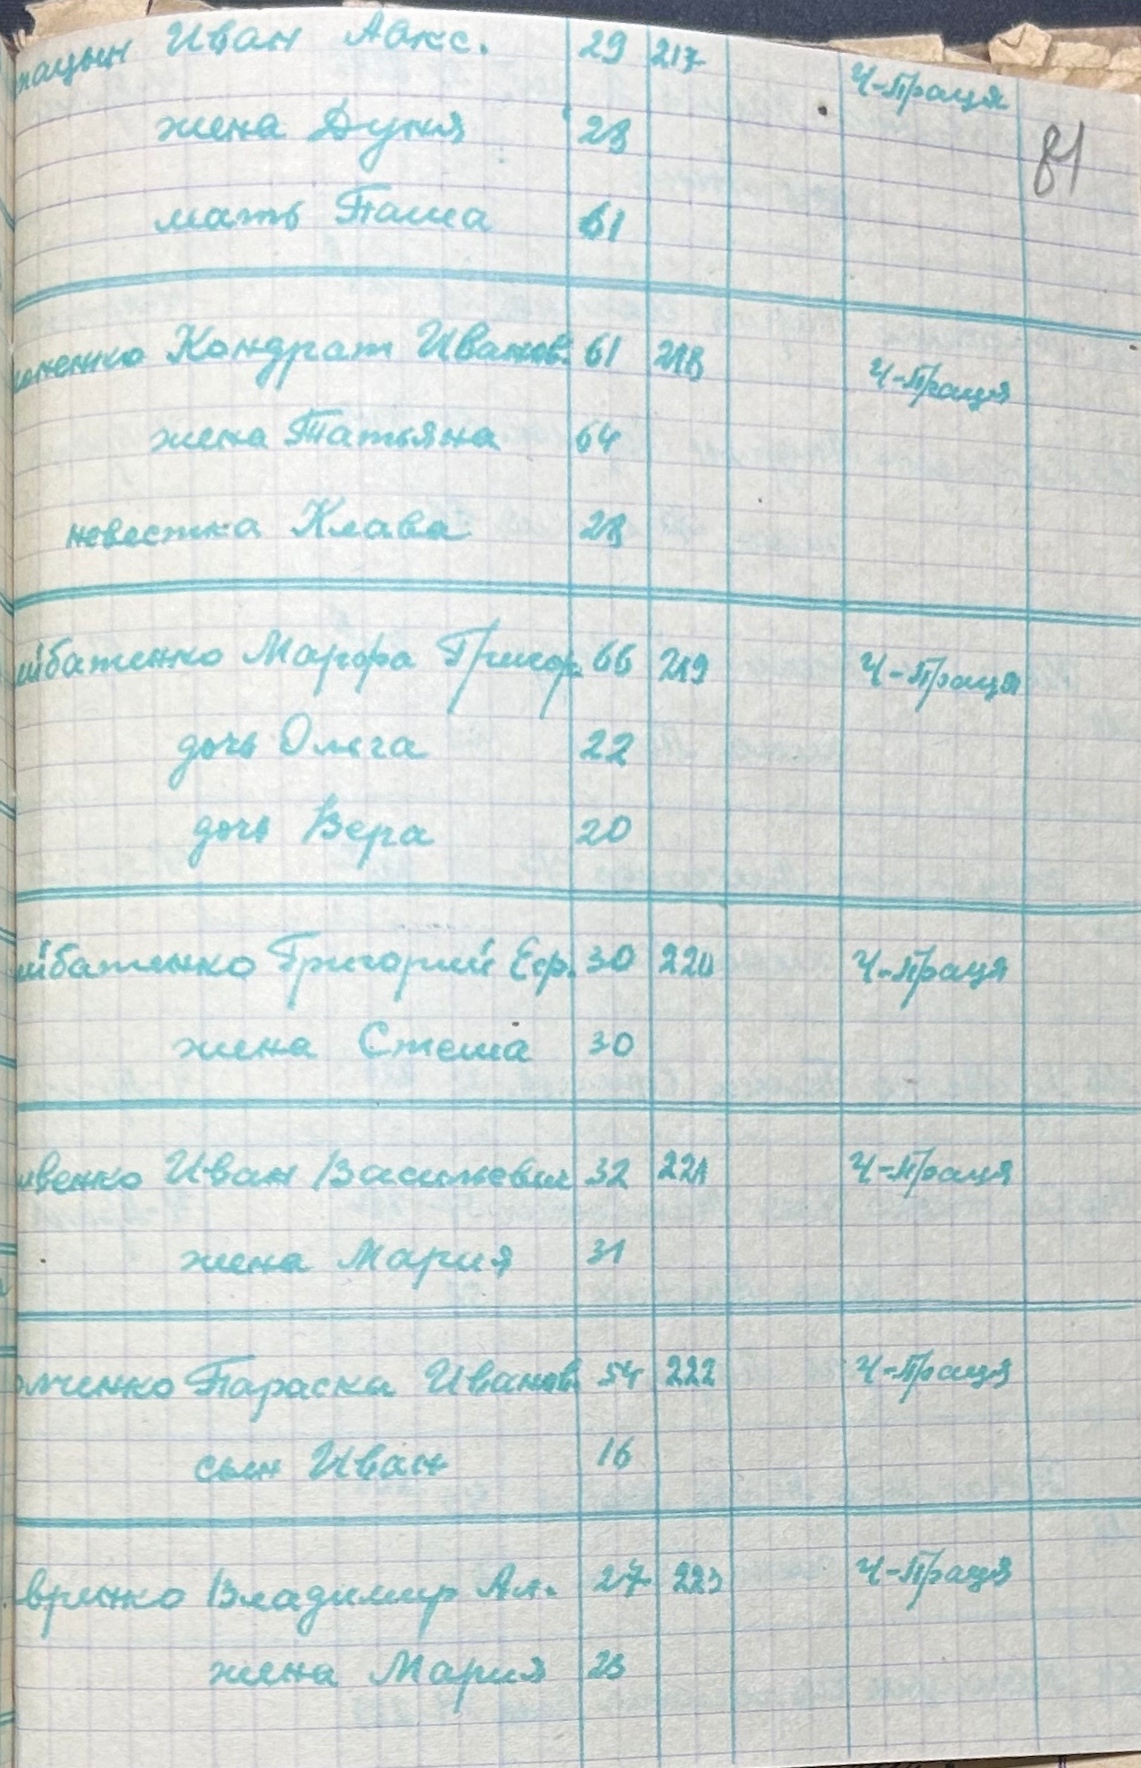 пацын Иван Авкс. 29 217 Ч-Праця
жена Дуня 28
81
мать Паша 61
ненко Кондрат Иванов. 61 218 Ч-Праця
жена Татьяна 64
невестка Клава 28
йбатенко Марфа Григор. 66 219 Ч-Праця
дочь Ольга 22
дочь Вера 20
йбатенко Григорий Еф. 30 220 Ч-Праця
жена Стеша 30
ивенко Иван Васильевич 32 221 Ч-Праця
жена Мария 31
мченко Параска Иванов. 54 222 Ч-Праця
сын Иван 16
вринко Владимир Ал. 27 223 Ч-Праця
жена Мария 23